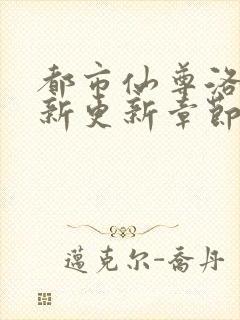 都市仙尊洛
新更新章節
邁克尔-喬丹